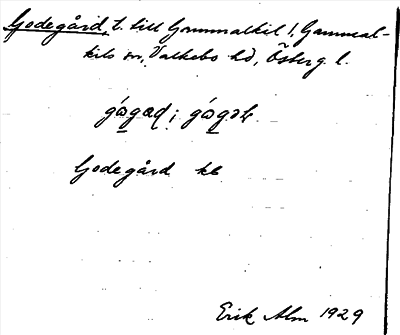 Godegård, t. till Gammalkil 1, Gammal-
kils sn, Valkebo hd, Österg. l.
Godegård kb
Erik Alm 1929